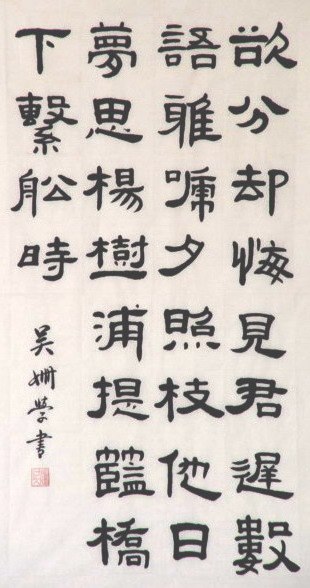 欲分却悔見君遲數
語雅啼夕照枝他日
夢思楊樹浦提籃橋
下繫舩時
吳姍学書